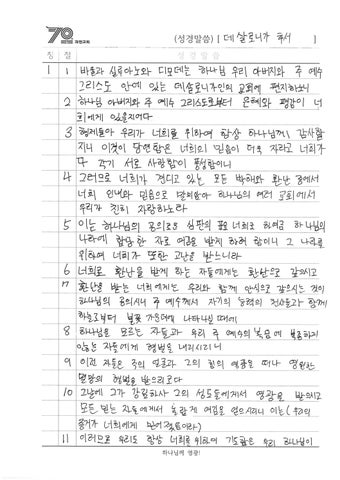 70 대영교회
(성경말씀) [ 데살로니가 후서 ]
장 절 성경말씀
1 1 바울과 실루아노와 디모데는 하나님 우리 아버지와 주 예수
그리스도 안에 있는 데살로니가인의 교회에 편지하노니
2 하나님 아버지와 주 예수 그리스도로부터 은혜와 평강이 너
희에게 있을지어다
3 형제들아 우리가 너희를 위하여 항상 하나님께 감사할
지니 이것이 당연함은 너희의 믿음이 더욱 자라고 너희가
다 각기 서로 사랑함이 풍성함이니
4 그러므로 너희가 견디고 있는 모든 박해와 환난 중에서
너희 인내와 믿음으로 말미암아 하나님의 여러 교회에서
우리가 친히 자랑하노라
5 이는 하나님의 공의로운 심판의 표요 너희로 하여금 하나님의
나라에 합당한 자로 여김을 받게 하려 함이니 그 나라를
위하여 너희가 또한 고난을 받느니라
6 너희로 환난을 받게 하는 자들에게는 환난으로 갚으시고
7 환난을 받는 너희에게는 우리와 함께 안식으로 갚으시는 것이
하나님의 공의시니 주 예수께서 자기의 능력의 천사들과 함께
하늘로부터 불꽃 가운데에 나타나실 때에
8 하나님을 모르는 자들과 우리 주 예수의 복음에 복종하지
않는 자들에게 형벌을 내리시리니
9 이런 자들은 주의 얼굴과 그의 힘의 영광을 떠나 영원한
멸망의 형벌을 받으리로다
10 그날에 그가 강림하사 그의 성도들에게서 영광을 받으시고
모든 믿는 자들에게서 놀랍게 여김을 얻으시리니 이는 (우리의
증거가 너희에게 믿어졌음이라)
11 이러므로 우리도 항상 너희를 위하여 기도함은 우리 하나님이
하나님께 영광!